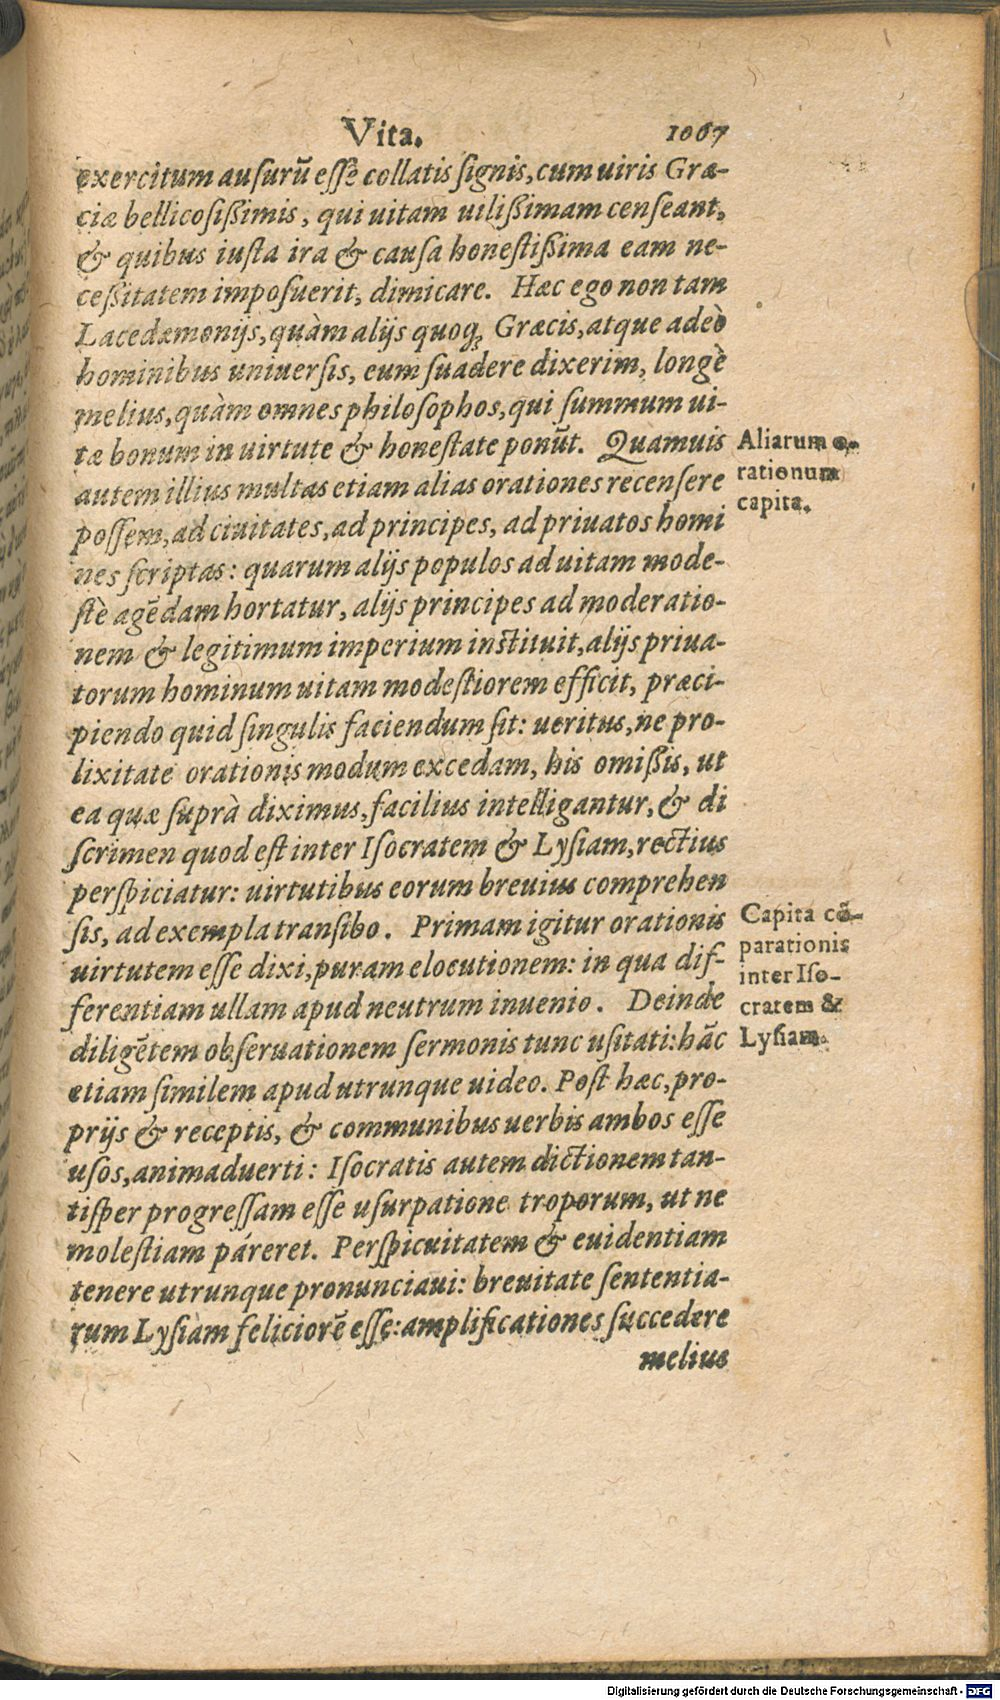 Vita. 1067
exercitum ausurũ esse collatis signis, cum uiris Græ-
ciæ bellicosißimis, qui uitam uilißimam censeant,
& quibus iusta ira & causa honestißima eam ne-
ceßitatem imposuerit, dimicare. Hæc ego non tam
Lacedæmonijs, quàm alijs quoq; Græcis, atque adeò
hominibus uniuersis, eum suadere dixerim, longè
melius, quàm omnes philosophos, qui summum ui-
tæ bonum in uirtute & honestate ponũt. Quamuis
autem illius multas etiam alias orationes recensere
possem, ad ciuitates, ad principes, ad priuatos homi
nes scriptas: quarum alijs populos ad uitam mode-
stè agẽdam hortatur, alijs principes ad moderatio-
nem & legitimum imperium instituit, alijs priua-
torum hominum uitam modestiorem efficit, præci-
piendo quid singulis faciendum sit: ueritus, ne pro-
lixitate orationis modum excedam, his omißis, ut
ea quæ suprà diximus, facilius intelligantur, & di
scrimen quod est inter Isocratem & Lysiam, rectius
perspiciatur: uirtutibus eorum breuius comprehen
sis, ad exempla transibo. Primam igitur orationis
uirtutem esse dixi, puram elocutionem: in qua dif-
ferentiam ullam apud neutrum inuenio. Deinde
diligẽtem obseruationem sermonis tunc usitati: hãc
etiam similem apud utrunque uideo. Post hæc, pro-
prijs & receptis, & communibus uerbis ambos esse
usos, animaduerti: Isocratis autem dictionem tan-
tisper progressam esse usurpatione troporum, ut ne
molestiam páreret. Perspicuitatem & euidentiam
tenere utrunque pronunciaui: breuitate sententia-
rum Lysiam feliciorẽ esse: amplificationes succedere
melius
Aliarum o-
rationum
capita.
Capita cõ-
parationis
inter Iso-
cratem &
Lysiam.
Digitalisierung gefördert durch die Deutsche Forschungsgemeinschaft - DFG